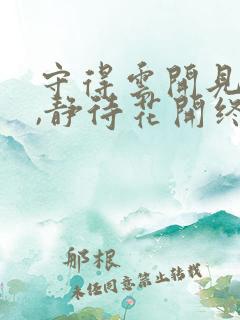 守得雲開見
,静待花開終
郍根
未经同意禁止转载